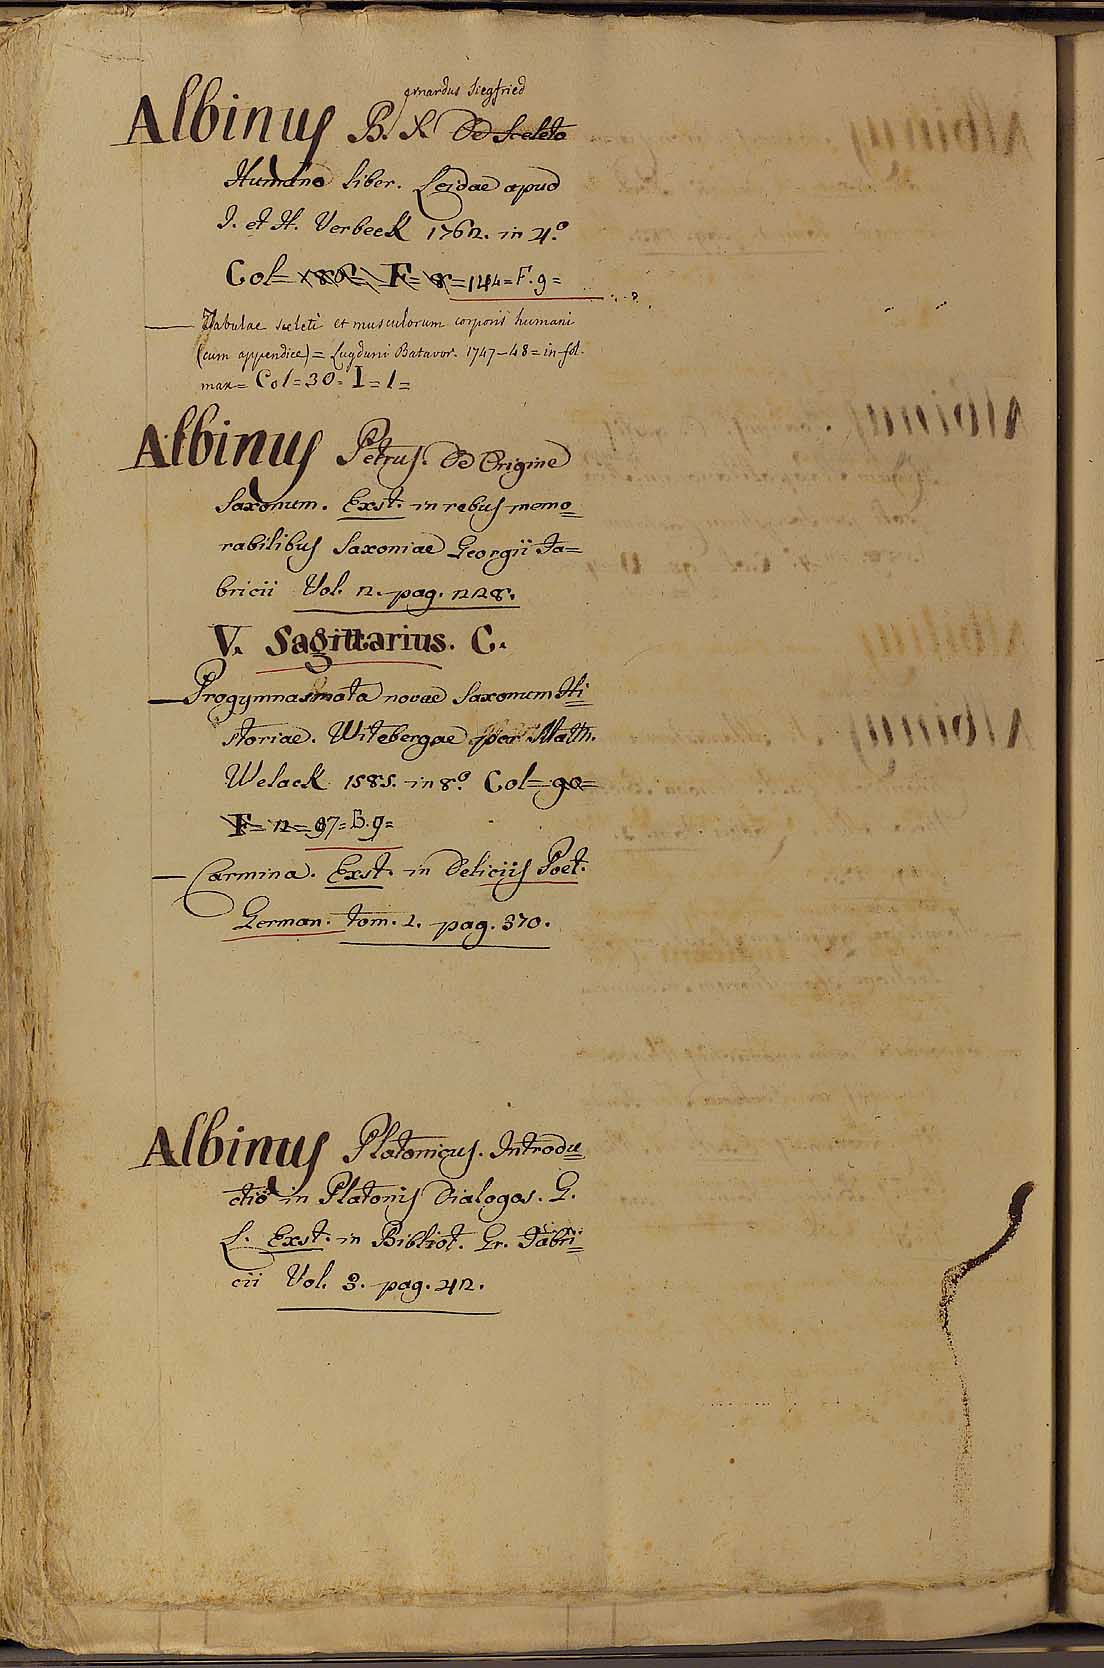 ernardus Siegfried
Albinus B. S. De Sceleto
Humano liber. Leidae apud
I. et H. Verbeek 1762. in 4.º
Col= 186= F= 8= 144= F. 9=
— Tabulae sceleti et musculorum corporis humani
(cum appendice) = Lugduni Batavor. 1747-48= in fol.
max= Col=30= I=1=
Albinus Petrus. De Origine
Saxonum. Exst. in rebus memo=
rabilibus Saxoniae Georgii Fa=
bricii Vol. 2. pag. 228.
V. Sagittarius. C.
— Progymnasmata novae Saxonum Hi=
storiae. Witebergae per Math.
Welack 1585. in 8.º Col= 90=
F= 2= 97= B. 9=
— Carmina. Exst. in Deliciis Poet.
German. tom. 1. pag. 370.
Albinus Platonicus. Introdu=
ctio in Platonis Dialogos. G.
L. Exst. in Bibliot. Gr. Fabri=
cii Vol. 3. pag. 42.